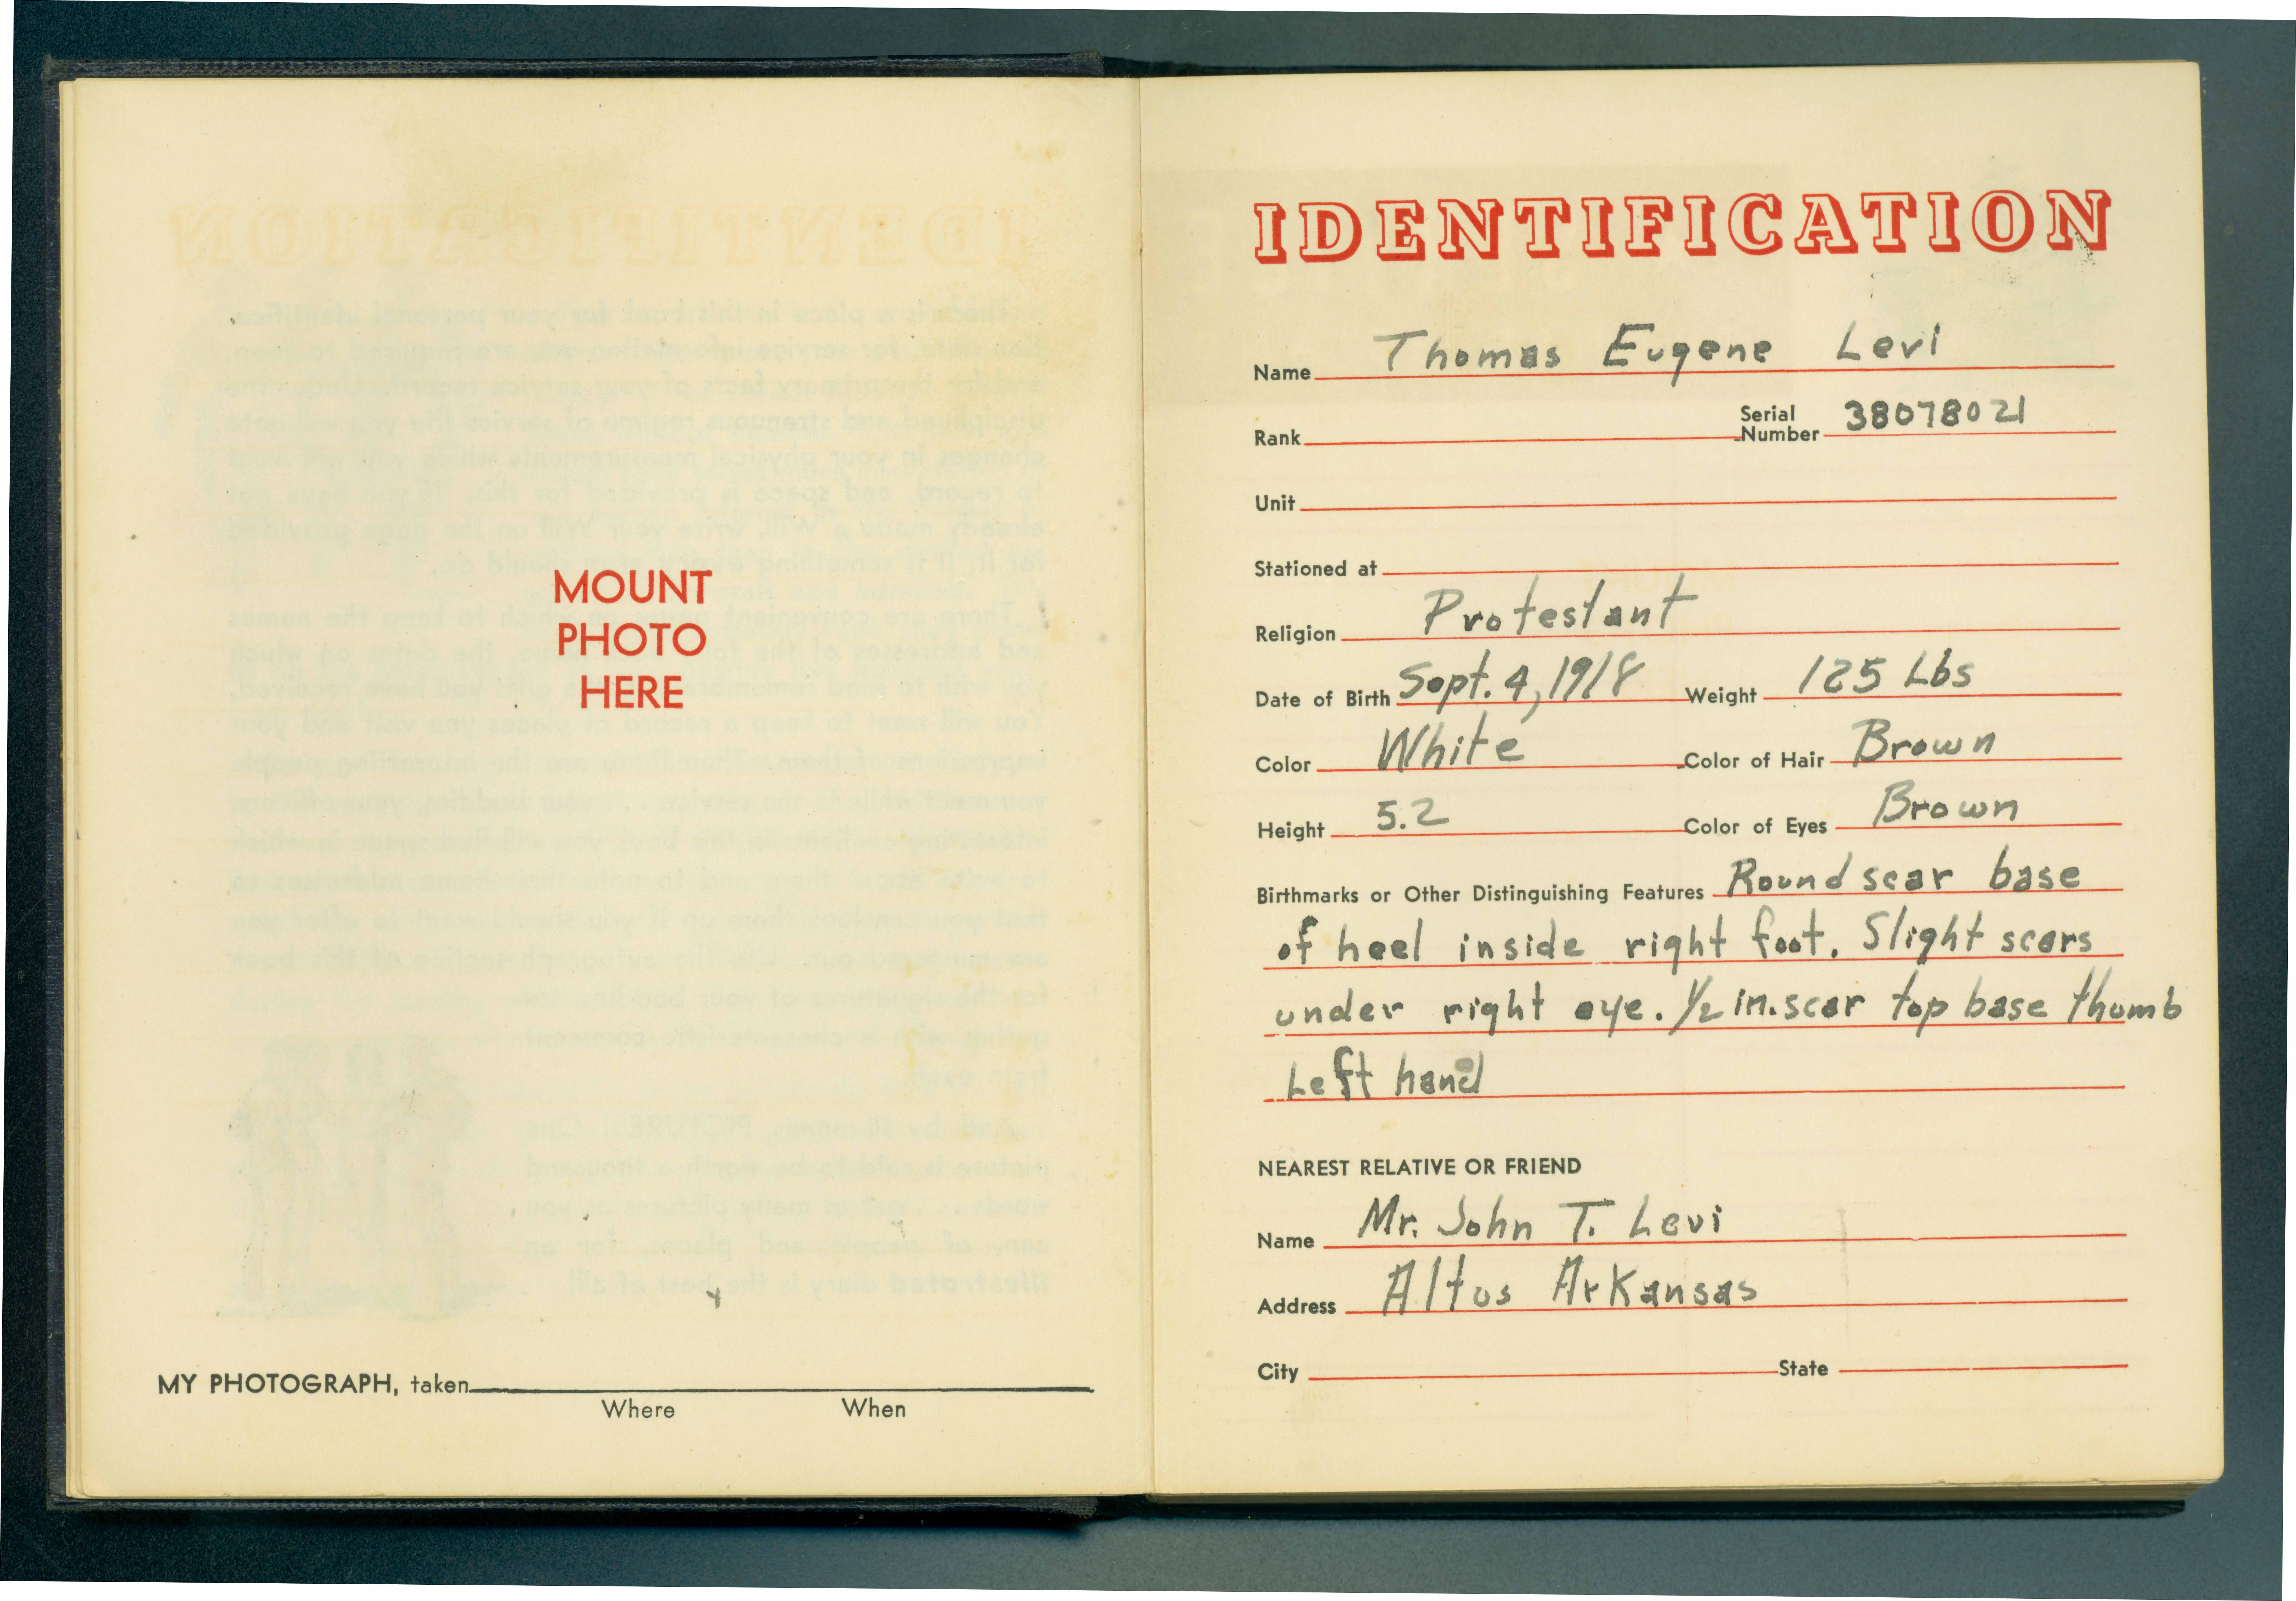 MOUNT
PHOTO
HERE
MY PHOTOGRAPH, taken
Where When
IDENTIFICATION
Name Thomas Eugene Levi
Rank Serial Number 38078021
Unit
Stationed at
Religion Protestant
Date of Birth Sept. 4, 1918 Weight 125 Lbs
Color White Color of Hair Brown
Height 5.2 Color of Eyes Brown
Birthmarks or Other Distinguishing Features Round scar base
of heel inside right foot. Slight scars
under right eye. 1/2 in. scar top base thumb
Left hand
NEAREST RELATIVE OR FRIEND
Name Mr. John T. Levi
Address Altus Arkansas
City State